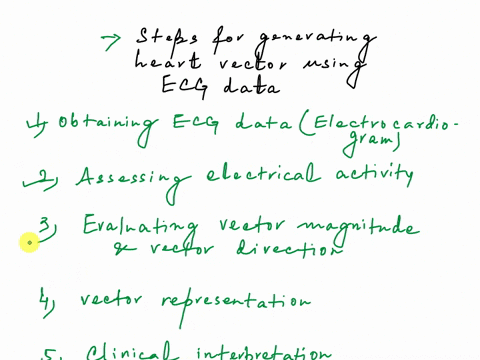 → Steps for generating
heart vector using
ECG data
1) Obtaining ECG data (Electrocardio-
gram)
2) Assessing electrical activity
3) Evaluating vector magnitude
& vector direction
4) vector representation
5. Clinical interpretation